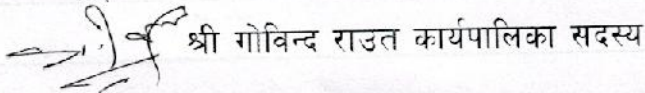 श्री गोविन्द राउत कार्यपालिका सदस्य